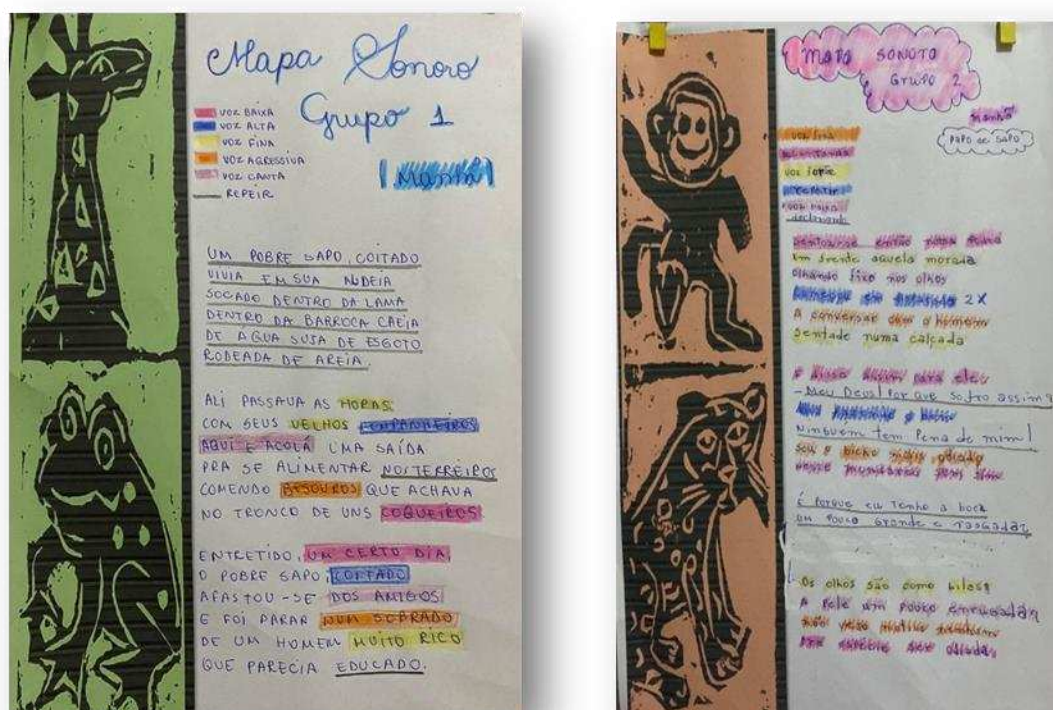 Mapa Sonoro
Grupo 1
VOZ BAIXA
VOZ ALTA
VOZ FINA
VOZ AGRESSIVA
VOZ CANTA
REPEIR
Manhã
UM POBRE SAPO, COITADO
VIVIA EM SUA ALDEIA
SOCADO DENTRO DA LAMA
DENTRO DA BARROCA CHEIA
DE ÁGUA SUJA DE ESGOTO
RODEADA DE AREIA.
ALI PASSAVA AS HORAS
COM SEUS VELHOS COMPANHEIROS
AQUI E ACOLÁ UMA SAÍDA
PRA SE ALIMENTAR NOS TERREIROS
COMENDO BESOUROS QUE ACHAVA
NO TRONCO DE UNS COQUEIROS
ENTRETIDO, UM CERTO DIA,
O POBRE SAPO, COITADO
AFASTOU-SE DOS AMIGOS
E FOI PARAR NUM SOBRADO
DE UM HOMEM MUITO RICO
QUE PARECIA EDUCADO.
MAPA SONORO
GRUPO 2
Manhã
PAPO DE SAPO
VOZ fina
VOZ forte
VOZ baixa
declamando
sentou-se então numa pedra
Em frente aquela morada
Olhando fixo nos olhos
2X
A conversar com o homem
Sentado numa calçada
E disse assim para ele:
- Meu Deus! Por que sofro assim?
Ninguém tem Pena de mim!
Sou o bicho mais odiado
É Porque eu Tenho a boca
Um Pouco Grande e rasgada,
Os olhos são como bilas,
A Pele um Pouco enrugada,
Não vejo motivo nenhum
Pra ser odiada